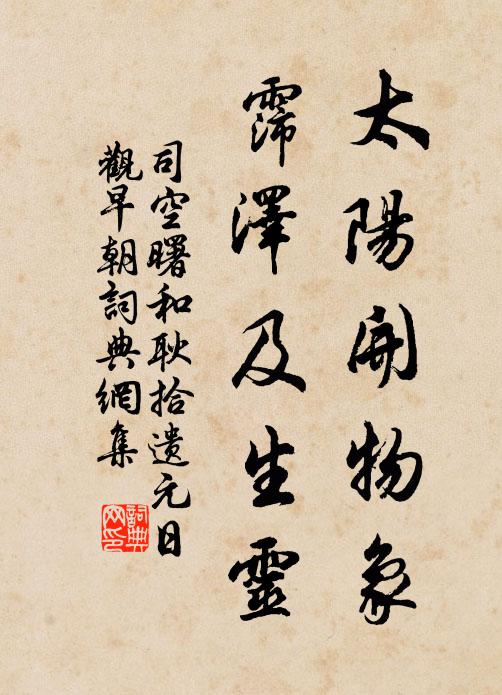 太陽開物象
霈澤及生靈
司空曙和耿拾遺元日
觀早朝詞典網集
詞典網印